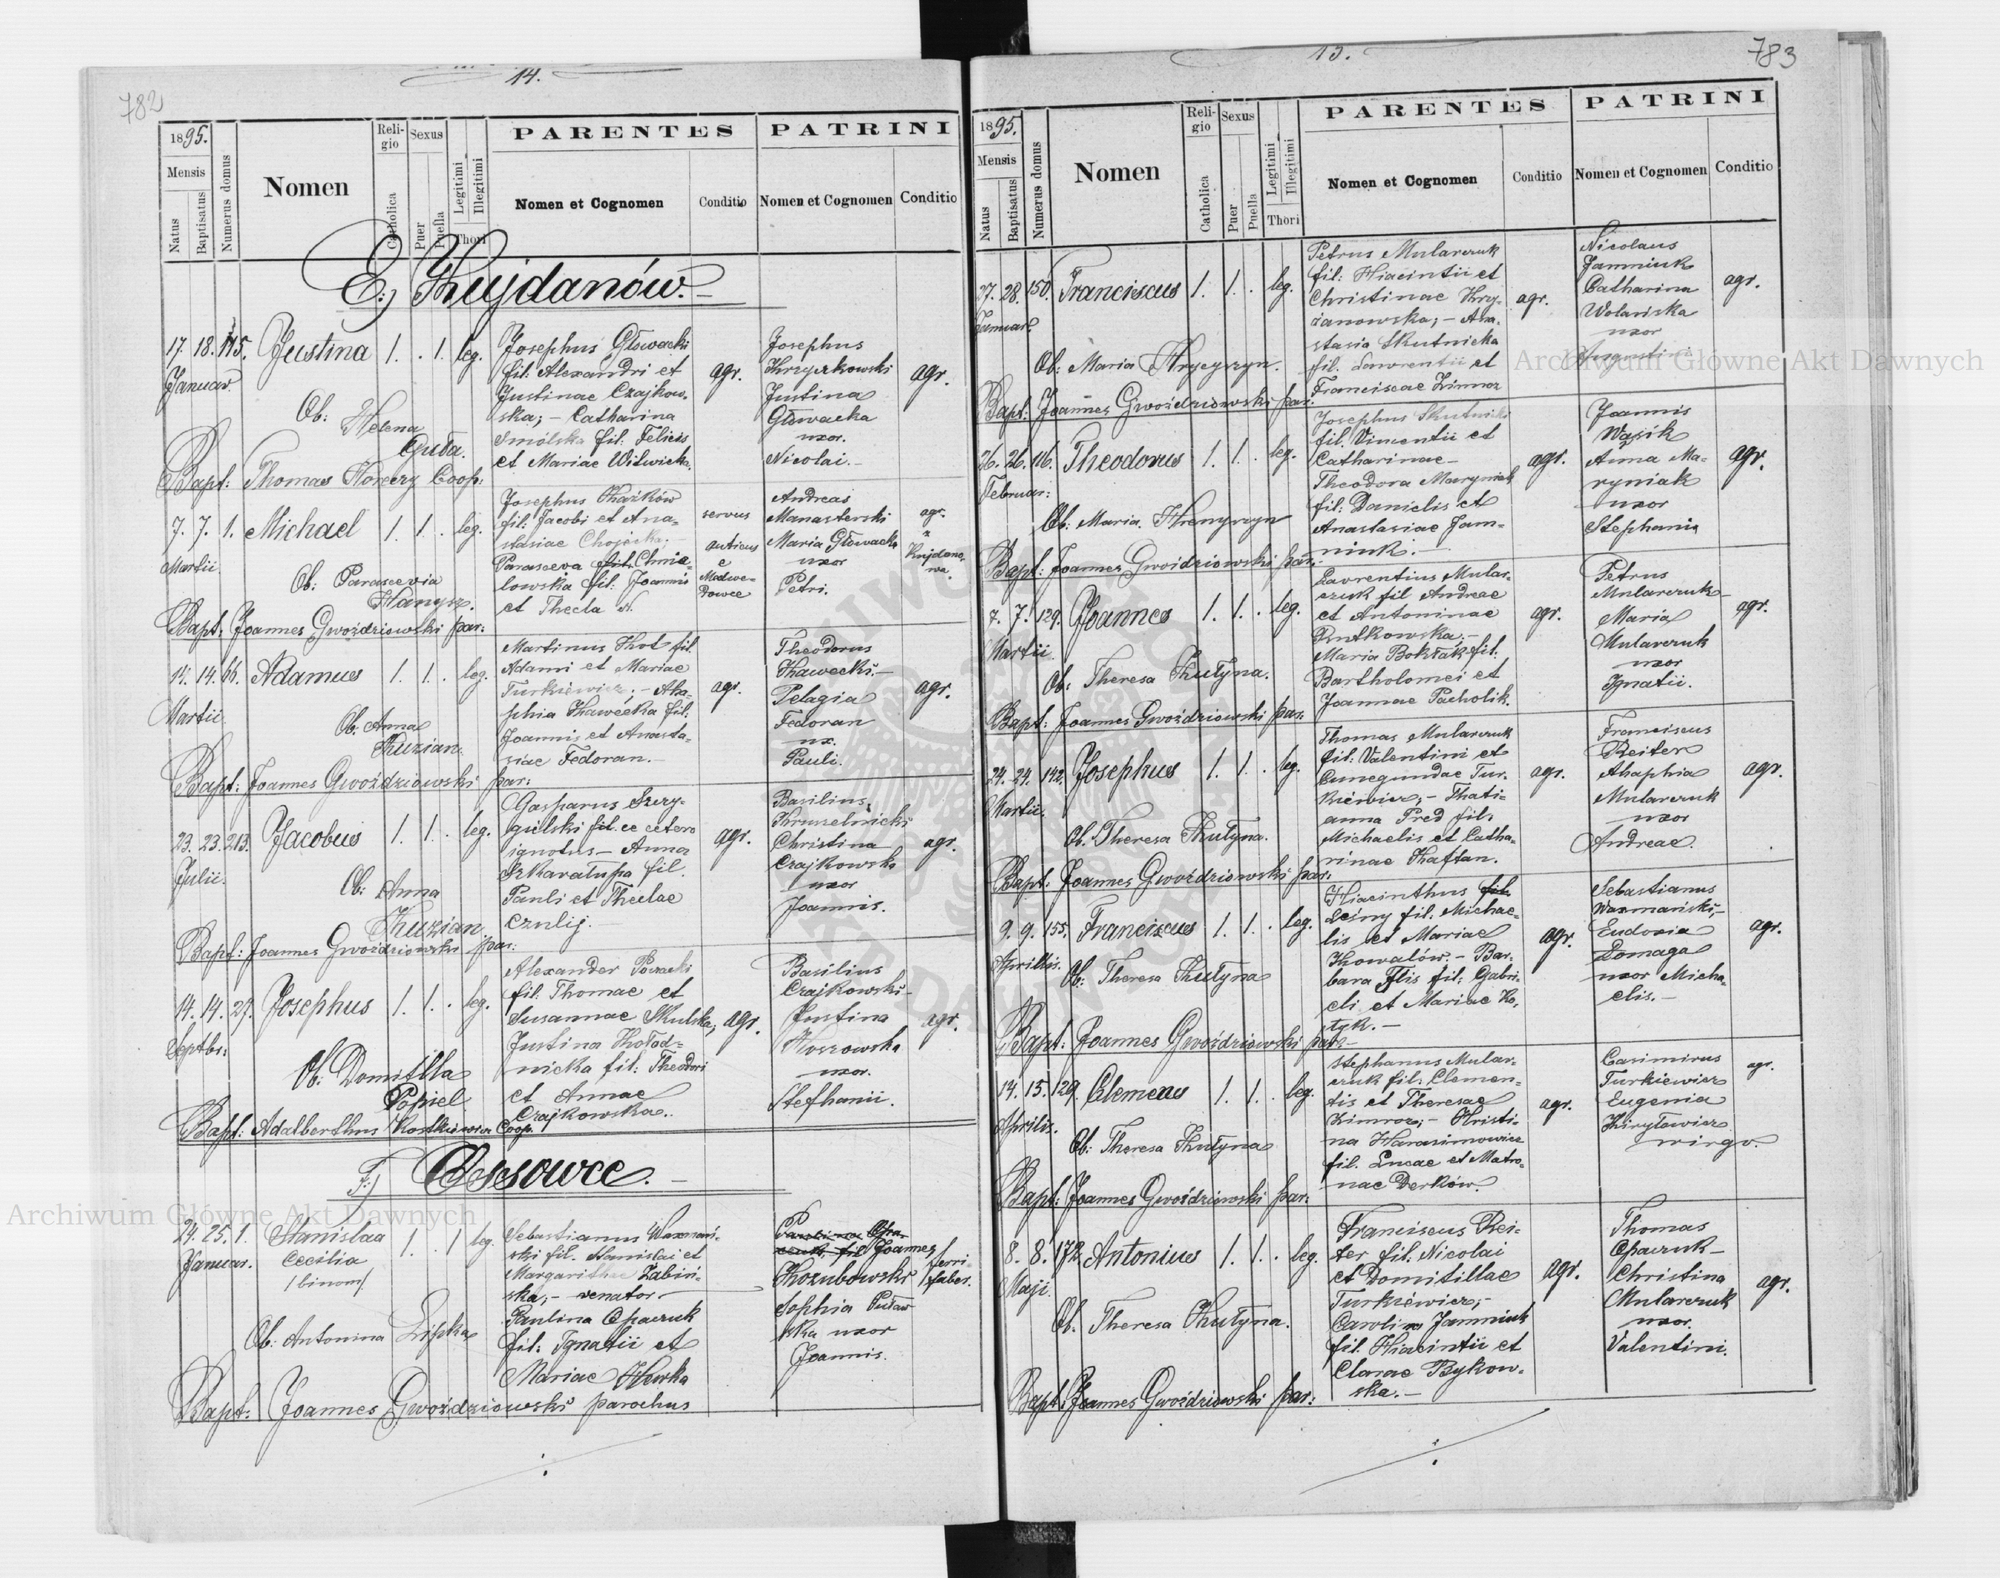 782
14.
1895.
Mensis
Natus
Baptisatus
Numerus domus
Nomen
Religio
Catholica
Sexus
Puer
Puella
Legitimi
Illegitimi
Thori
PARENTES
Nomen et Cognomen
Conditio
PATRINI
Nomen et Cognomen
Conditio
E.) Kujdanów.
17. 18. 115. Justina 1. . 1. leg.
Januar.
Ob: Helena
Guda.
Josephus Głowacki
fil: Alexandri et
Justinae Czajkow-
ska; - Catharina
Smólska fil. Felicis
et Mariae Witwicka.
agr.
Josephus
Krzyżkowski
Justina
Głowacka
uxor.
Nicolai.
agr.
Bapt: Thomas Coop:
7. 7. 1. Michael 1. 1. . leg.
Martii
Ob: Parascevia
Hanysz.
Josephus
fil: Jacobi et Ana-
stasiae
Parasceva fil: Chmie-
lowska fil: Joannis
et Thecla N.
servus
Medwe-
dowce
Andreas
Manasterski
Maria Głowacka
uxor
Petri.
agr.
Kujdano-
wa.
Bapt: Joannes Gwoździowski par:
14. 14. 66. Adamus 1. 1. . leg.
Martii
Ob: Anna
Kuzian.
Martinus Kot fil.
Adami et Mariae
Turkiewicz; - Aha-
phia Kawecka fil:
Joannis et Anasta-
siae Fedoran.
agr.
Theodorus
Kawecki.
Pelagia
Fedoran
ux.
Pauli.
agr.
Bapt: Joannes Gwoździowski par:
23. 23. 213. Jacobus 1. 1. . leg.
Julii.
Ob: Anna
Kuzian
Gasparus Szery-
gulski fil. ce cetero
ignotus - Anna
Szkarałupa fil.
Pauli et Theclae
Cznlij.
agr.
Basilius
Kruszelnicki
Christina
Czajkowska
uxor
Joannis.
agr.
Bapt: Joannes Gwoździowski par:
14. 14. 27. Josephus 1. 1. . leg.
Septbr:
Ob: Domitilla
Popiel
Alexander
fil: Thomae et
Susannae Skulska;
Justina Kołod-
nicka fil: Theodori
et Annae
Czajkowskae.
agr.
Basilius
Czajkowski
Justina
Koszowska
uxor.
Stefhanii.
agr.
Bapt: Adalberthus Kostkiewicz Coop.
F.) Ossowce.
24. 25. 1. Stanislaa 1. . 1 leg.
Januar. Cecilia
/binom/
Ob: Antonina Lipka
Sebastianus Waxmań-
ski fil. Stanislai et
Margarithae Zabiń-
ska; - venator
Paulina Opaczuk
fil: Ignatii et
Mariae Hewka
Joannes
Kozubowski
Sophia Puław
ska uxor
Joannis.
ferri-
faber.
Bapt: Joannes Gwoździowski parochus
783
15.
1895.
Mensis
Natus
Baptisatus
Numerus domus
Nomen
Religio
Catholica
Sexus
Puer
Puella
Legitimi
Illegitimi
Thori
PARENTES
Nomen et Cognomen
Conditio
PATRINI
Nomen et Cognomen
Conditio
27. 28. 150. Franciscus 1. 1. . leg.
Januar.
Ob: Maria Hrycyszyn.
Petrus Mularczuk
fil: Hiacintii et
Christinae Kry-
żanowska; - Ana-
stasia Skutnicka
fil. Lawrentii et
Franciscae Zimroz
agr.
Nicolaus
Jamniuk
Catharina
Wolańska
uxor
agr.
Archiwum Główne Akt Dawnych
Bapt: Joannes Gwoździowski par:
26. 26. 116. Theodorus 1. 1. . leg.
Februar:
Ob: Maria
Josephus Skutnicki
fil. Vincentii et
Catharinae -
Theodora Maryniak
fil: Danielis et
Anastasiae Jam-
niuk.
agr.
Joannis
Wąsik
Anna Ma-
ryniak
uxor
Stephania
agr.
Bapt: Joannes Gwoździowski par:
7. 7. 129. Joannes 1. 1. . leg.
Martii
Ob: Theresa Kułyna.
Lavrentius Mular-
czuk fil Andreae
et Antoninae
Rutkowska; -
Maria Boksłak fil:
Bartholomei et
Joannae Pacholik.
agr.
Petrus
Mularczuk
Maria
Mularczuk
uxor
Ignatii.
agr.
Bapt: Joannes Gwoździowski par:
24. 24. 142. Josephus 1. 1. . leg.
Martii.
Ob. Theresa Kułyna.
Thomas Mularczuk
fil: Valentini et
Cunegundae Tur-
kiewicz, - Thati-
anna Pred fil:
Michaelis et Catha-
rinae Kaftan.
agr.
Franciscus
Reiter
Ahaphia
Mularczuk
uxor
Andreae.
agr.
Bapt: Joannes Gwoździowski par:
9. 9. 155. Franciscus 1. 1. . leg.
Aprillis.
Ob: Theresa Kułyna
Hiacinthus fil.
Leśny fil. Michae-
lis et Mariae
Kowalów. - Bar-
bara Flis fil: Gabri-
eli et Mariae Ko-
tyk. -
agr.
Sebastianus
Waxmański,
Eudoxia
Domaga
uxor Micha-
elis. -
agr.
Bapt: Joannes Gwoździowski par:
14. 15. 129. Clemens 1. 1. . leg.
Aprilis.
Ob: Theresa Kułyna
Stephanus Mular-
czuk fil: Clemen-
tis et Theresae
Zimroz; - Kristi-
na Harasimowicz
fil. Lucae et Matro-
nae Derków.
agr.
Casimirus
Turkiewicz
Eugenia
Kiryłowicz
wirgo.
agr.
Bapt: Joannes Gwoździowski par:
8. 8. 172. Antonius 1. 1. . leg.
Maji.
Ob. Theresa Kułyna.
Franciscus Rei-
ter fil: Nicolai
et Domitillae
Turkiewicz; -
Carolina Jamniuk
fil. Hiacintii et
Clarae Bykow-
ska. -
agr.
Thomas
Opaczuk
Christina
Mularczuk
uxor.
Valentini.
agr.
Bapt: Joannes Gwoździowski par:
Archiwum Główne Akt Dawnych